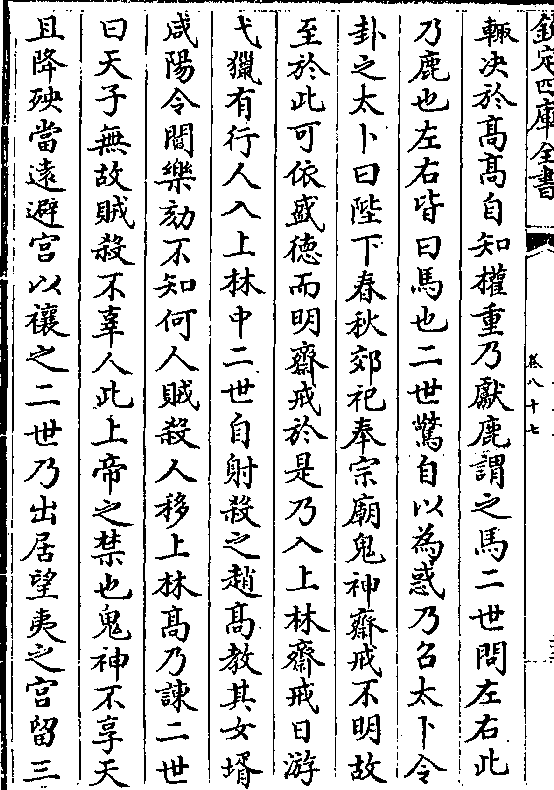 欽定四庫全書
卷八十七
輙決於髙髙自知權重乃獻鹿謂之馬二世問左右此
乃鹿也左右皆曰馬也二世驚自以為惑乃召太卜令
卦之太卜曰陛下春秋郊祀奉宗廟鬼神齋戒不明故
至於此可依盛德而明齋戒於是乃入上林齋戒日游
弋獵有行人入上林中二世自射殺之趙髙教其女壻
咸陽令閻樂劾不知何人賊殺人移上林髙乃諫二世
曰天子無故賊殺不辜人此上帝之禁也鬼神不享天
且降殃當遠避宫以禳之二世乃出居望夷之宫留三